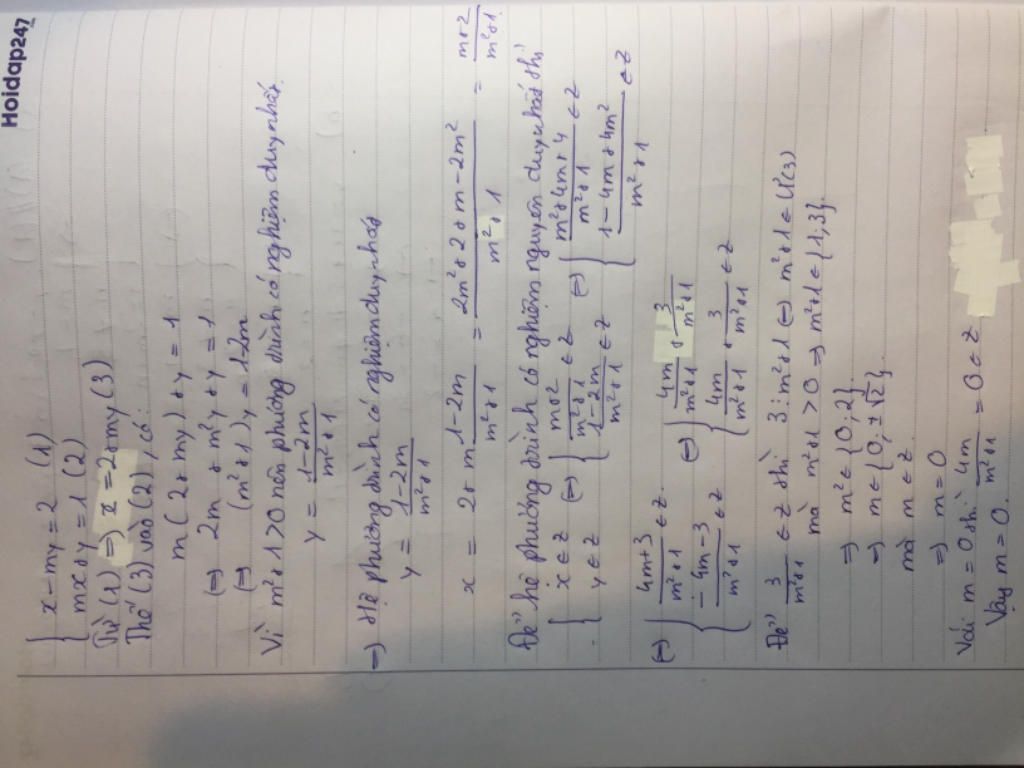 Hoidap247
{ x - my = 2 (1)
{ mx + y = 1 (2)
Từ (1) => x = 2 + my (3)
Thế (3) vào (2), có:
m (2 + my) + y = 1
(=) 2m + m²y + y = 1
(=) (m² + 1) y = 1 - 2m
Vì m² + 1 > 0 nên phương trình có nghiệm duy nhất.
y = (1 - 2m)/(m² + 1)
=) Hệ phương trình có nghiệm duy nhất
y = (1 - 2m)/(m² + 1)
x = 2 + m (1 - 2m)/(m² + 1) = (2m² + 2 + m - 2m²)/(m² + 1) = (m + 2)/(m² + 1)
Để hệ phương trình có nghiệm nguyên duy nhất thì
{ x ∈ Z (=) { (m + 2)/(m² + 1) ∈ Z (=) { (m² + 4m + 4)/(m² + 1) ∈ Z
{ y ∈ Z { (1 - 2m)/(m² + 1) ∈ Z { (1 - 4m + 4m²)/(m² + 1) ∈ Z
(=) { (4m + 3)/(m² + 1) ∈ Z (=) { 4m/(m² + 1) + 3/(m² + 1)
{ (-4m - 3)/(m² + 1) ∈ Z { 4m/(m² + 1) + 3/(m² + 1) ∈ Z
Để 3/(m² + 1) ∈ Z thì 3 ⋮ m² + 1 (=) m² + 1 ∈ Ư(3)
mà m² + 1 > 0 => m² + 1 ∈ {1, 3}.
=> m² ∈ {0, 2}
=> m ∈ {0, ±√2}.
mà m ∈ Z
=> m = 0
Với m = 0 thì 4m/(m² + 1) = 0 ∈ Z
Vậy m = 0.